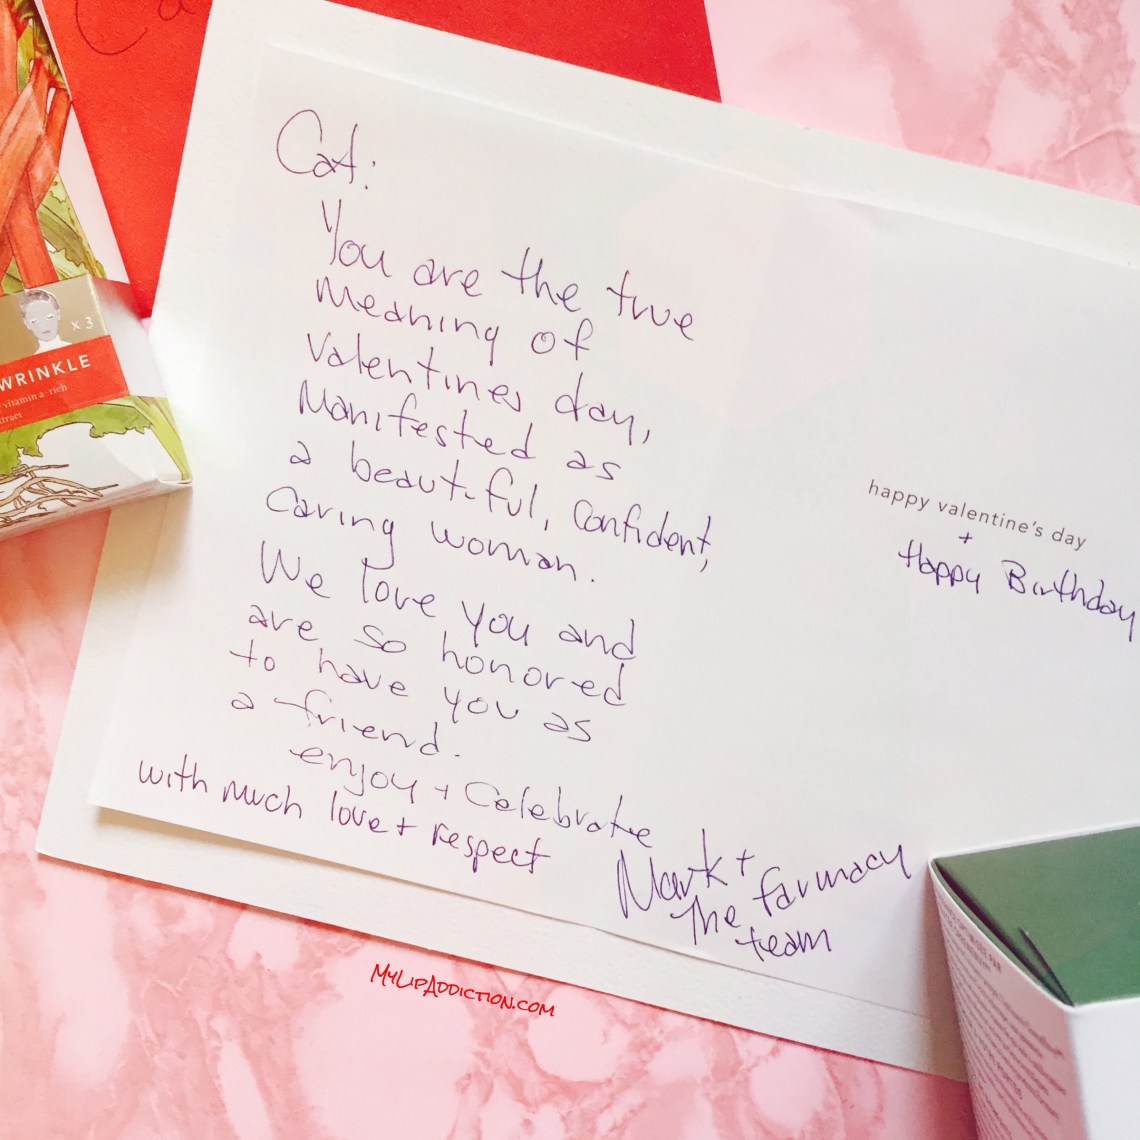 Ca
Cat:
You are the true
meaning of
valentines day,
Manifested as
a beautiful, confident,
Caring woman.
We love you and
are so honored
to have you as
a friend.
enjoy + Celebrate
with much love + respect
Mark +
The farmacy
team
happy valentine's day
+
Happy Birthday
x 3
WRINKLE
vitamin a-rich
tract
MyLipAddiction.com